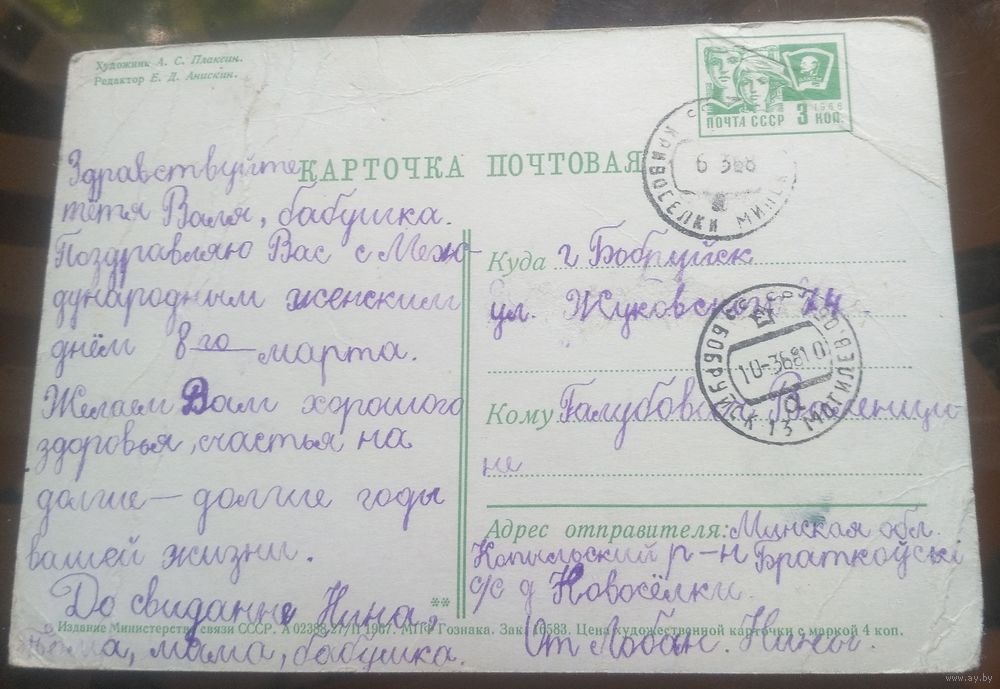 Художник А. С. Плаксин.
Редактор Е. Д. Анискин.
ПОЧТА СССР 3 КОП.
1966
КРИВОСЕЛКИ МИНСК
6 368
КАРТОЧКА ПОЧТОВАЯ
Здравствуйте
тётя Валя, бабушка.
Поздравляю Вас с Меж-
дународным женским
днём 8го марта.
Желаем Вам хорошого
здоровья, счастья на
долгие – долгие годы
вашей жизни.
До свидание Нина,
мама, бабушка.
Куда г Бобруйск
ул. Жуковского 74
БОБРУЙСК 13 МОГИЛЕВ
10-36810
Кому Галубовской Валенци
не
Адрес отправителя: Минская обл.
Копыльский р-н Браткоўскі
с/с д Новосёлки.
От Лобан. Нины.
** Издание Министерства связи СССР. А 02388 27/II 1967. МПФ Гознака. Зак. 10583. Цена художественной карточки с маркой 4 коп.
www.ay.by